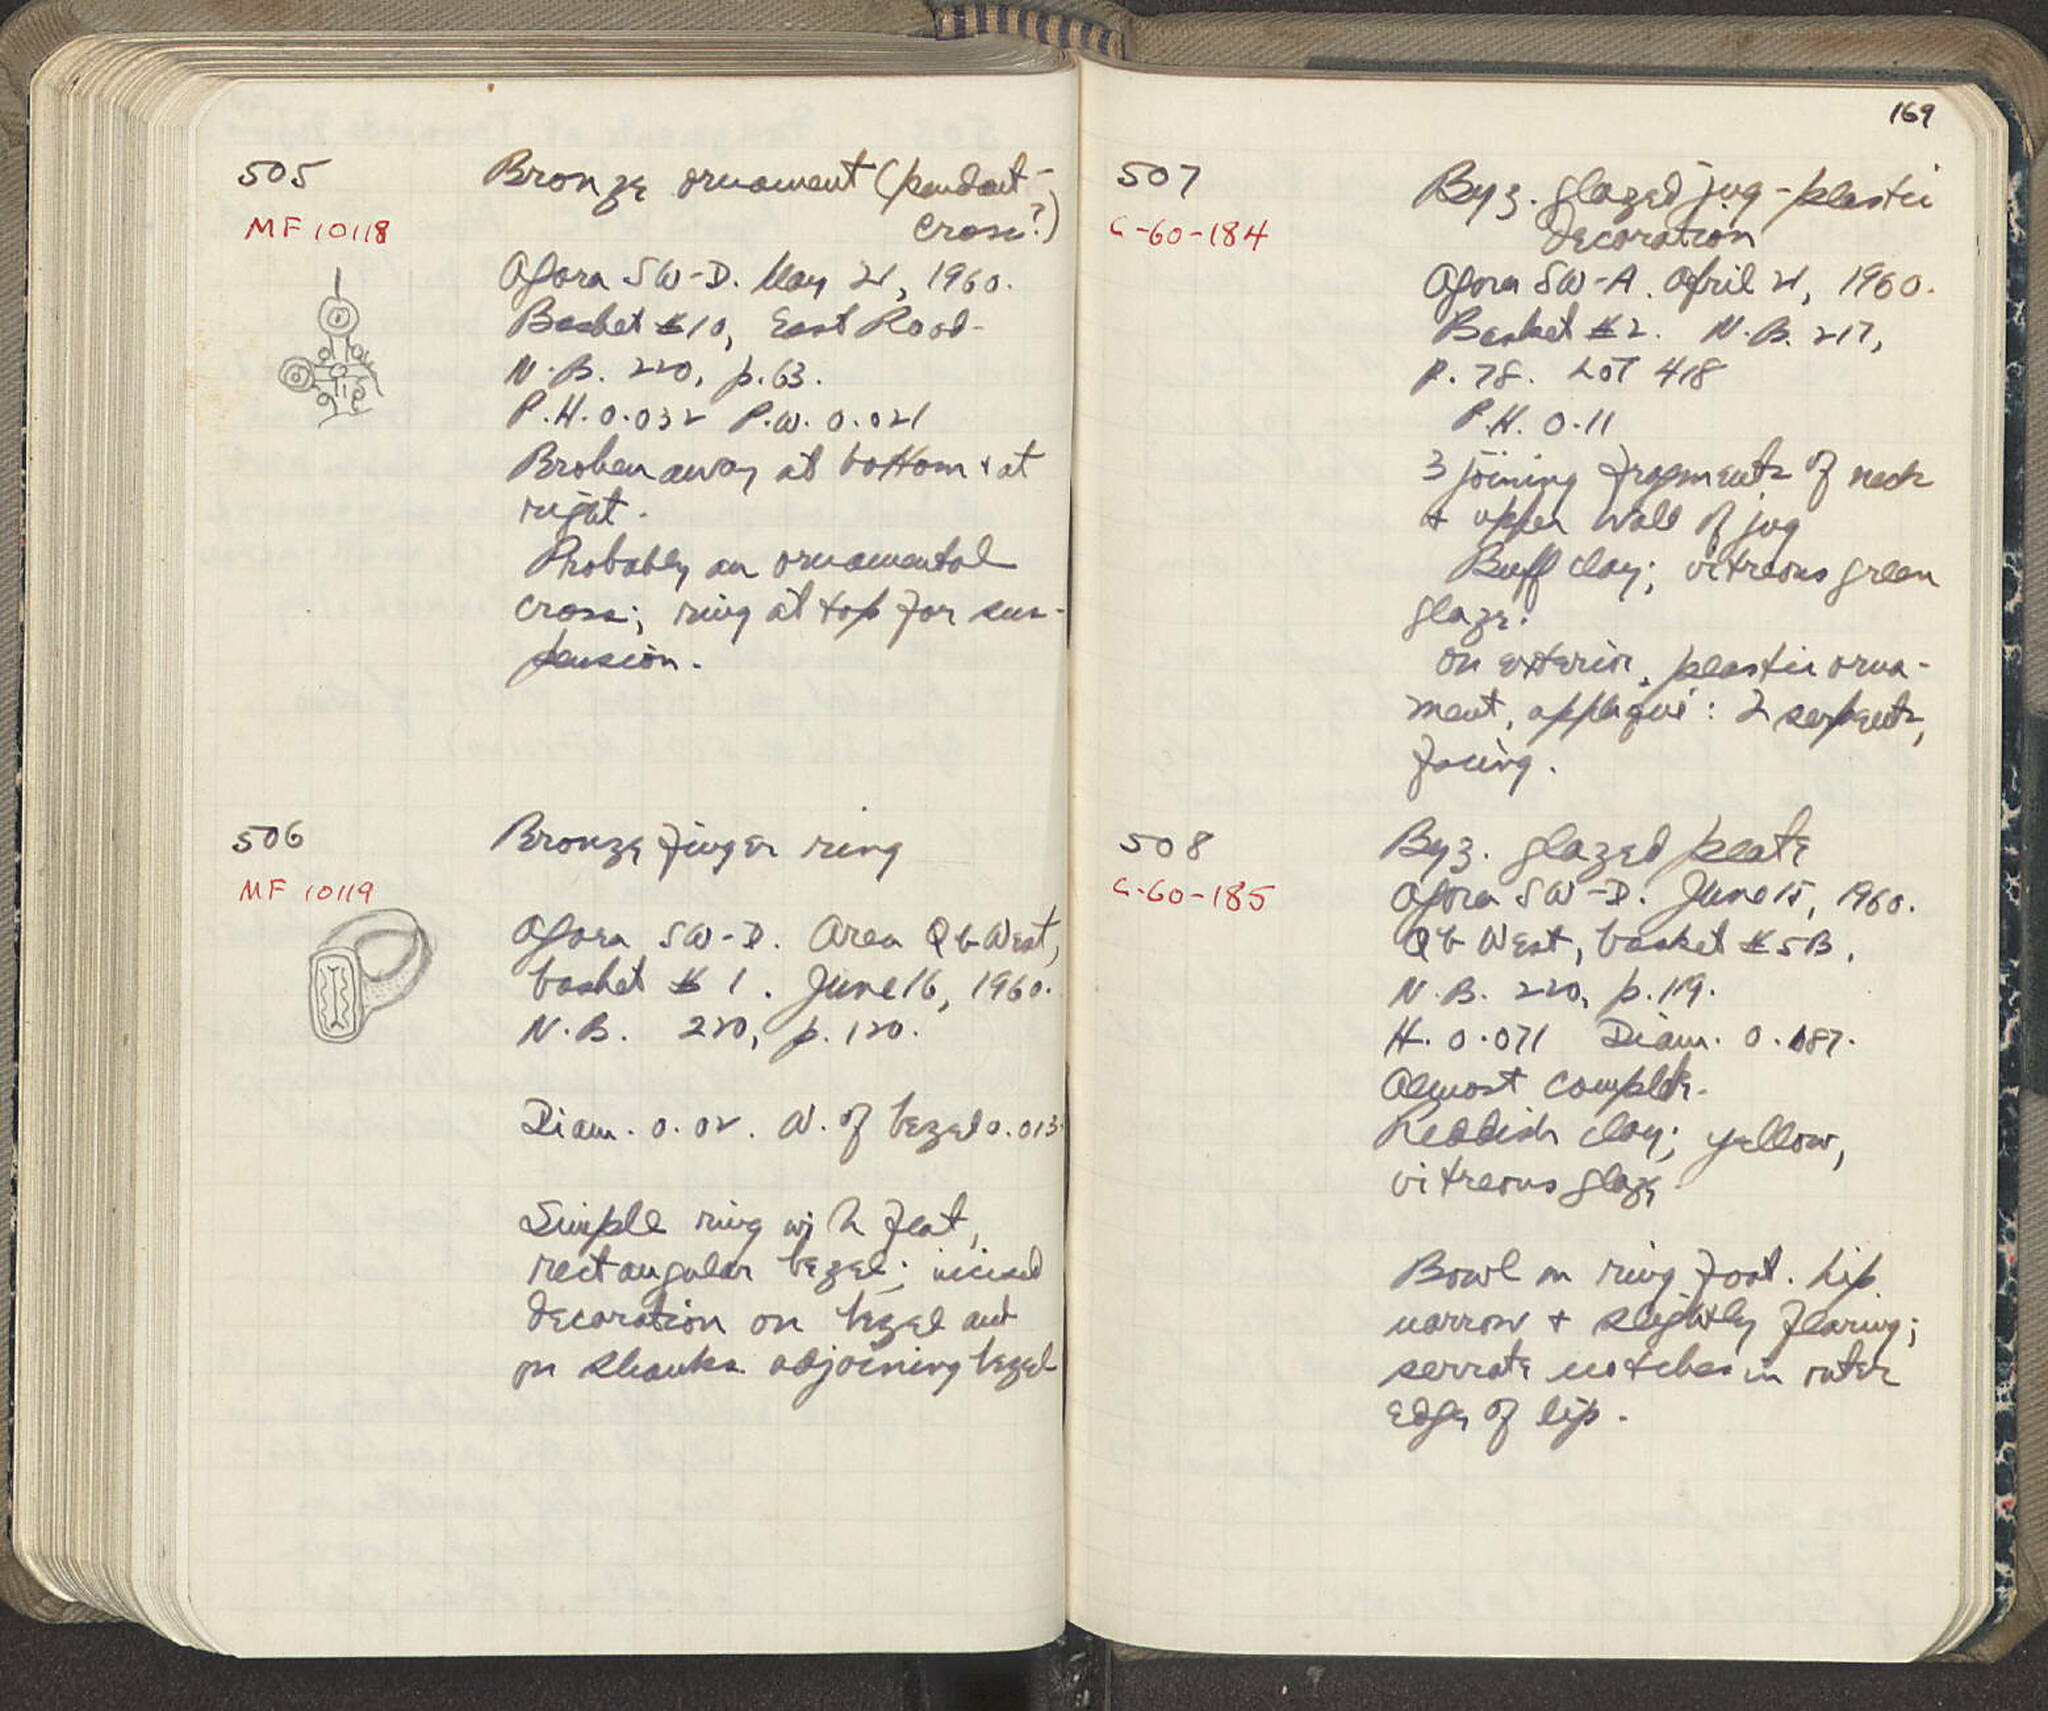 505
MF 10118
Bronze ornament (pendant-
cross?)
Agora SW-D. May 21, 1960.
Basket #10, East Road-
N.B. 220, p.63.
P.H. 0.032 P.W. 0.021
Broken away at bottom + at
right.
Probably an ornamental
cross; ring at top for sus-
pension.
506
MF 10119
Bronze finger ring
Agora SW-D. Area Qb West,
basket #1. June 16, 1960.
N.B. 220, p.120.
Diam. 0.02. W. of bezel 0.013
Simple ring with flat,
rectangular bezel; incised
decoration on bezel and
on shanks adjoining bezel
169
507
C-60-184
Byz. glazed jug - plastic
decoration
Agora SW-A. April 21, 1960.
Basket #2. N.B. 217,
P. 78. Lot 418
P.H. 0.11
3 joining fragments of neck
+ upper wall of jug
Buff clay; vitreous green
glaze.
On exterior, plastic orna-
ment, appliqué: 2 serpents,
facing.
508
C-60-185
Byz. glazed plate
Agora SW-D. June 15, 1960.
Qb West, basket #5B.
N.B. 220, p.119.
H. 0.071 Diam. 0.187.
Almost complete.
Reddish clay; yellow,
vitreous glaze
Bowl on ring foot. Lip
narrow + slightly flaring;
serrate notches in outer
edge of lip.